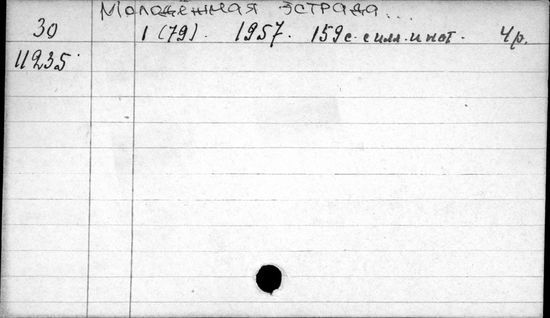 Молодёжная эстрада...
30 1 (79). 1957. 159 с. с илл. и нот. 4 р.
11235.